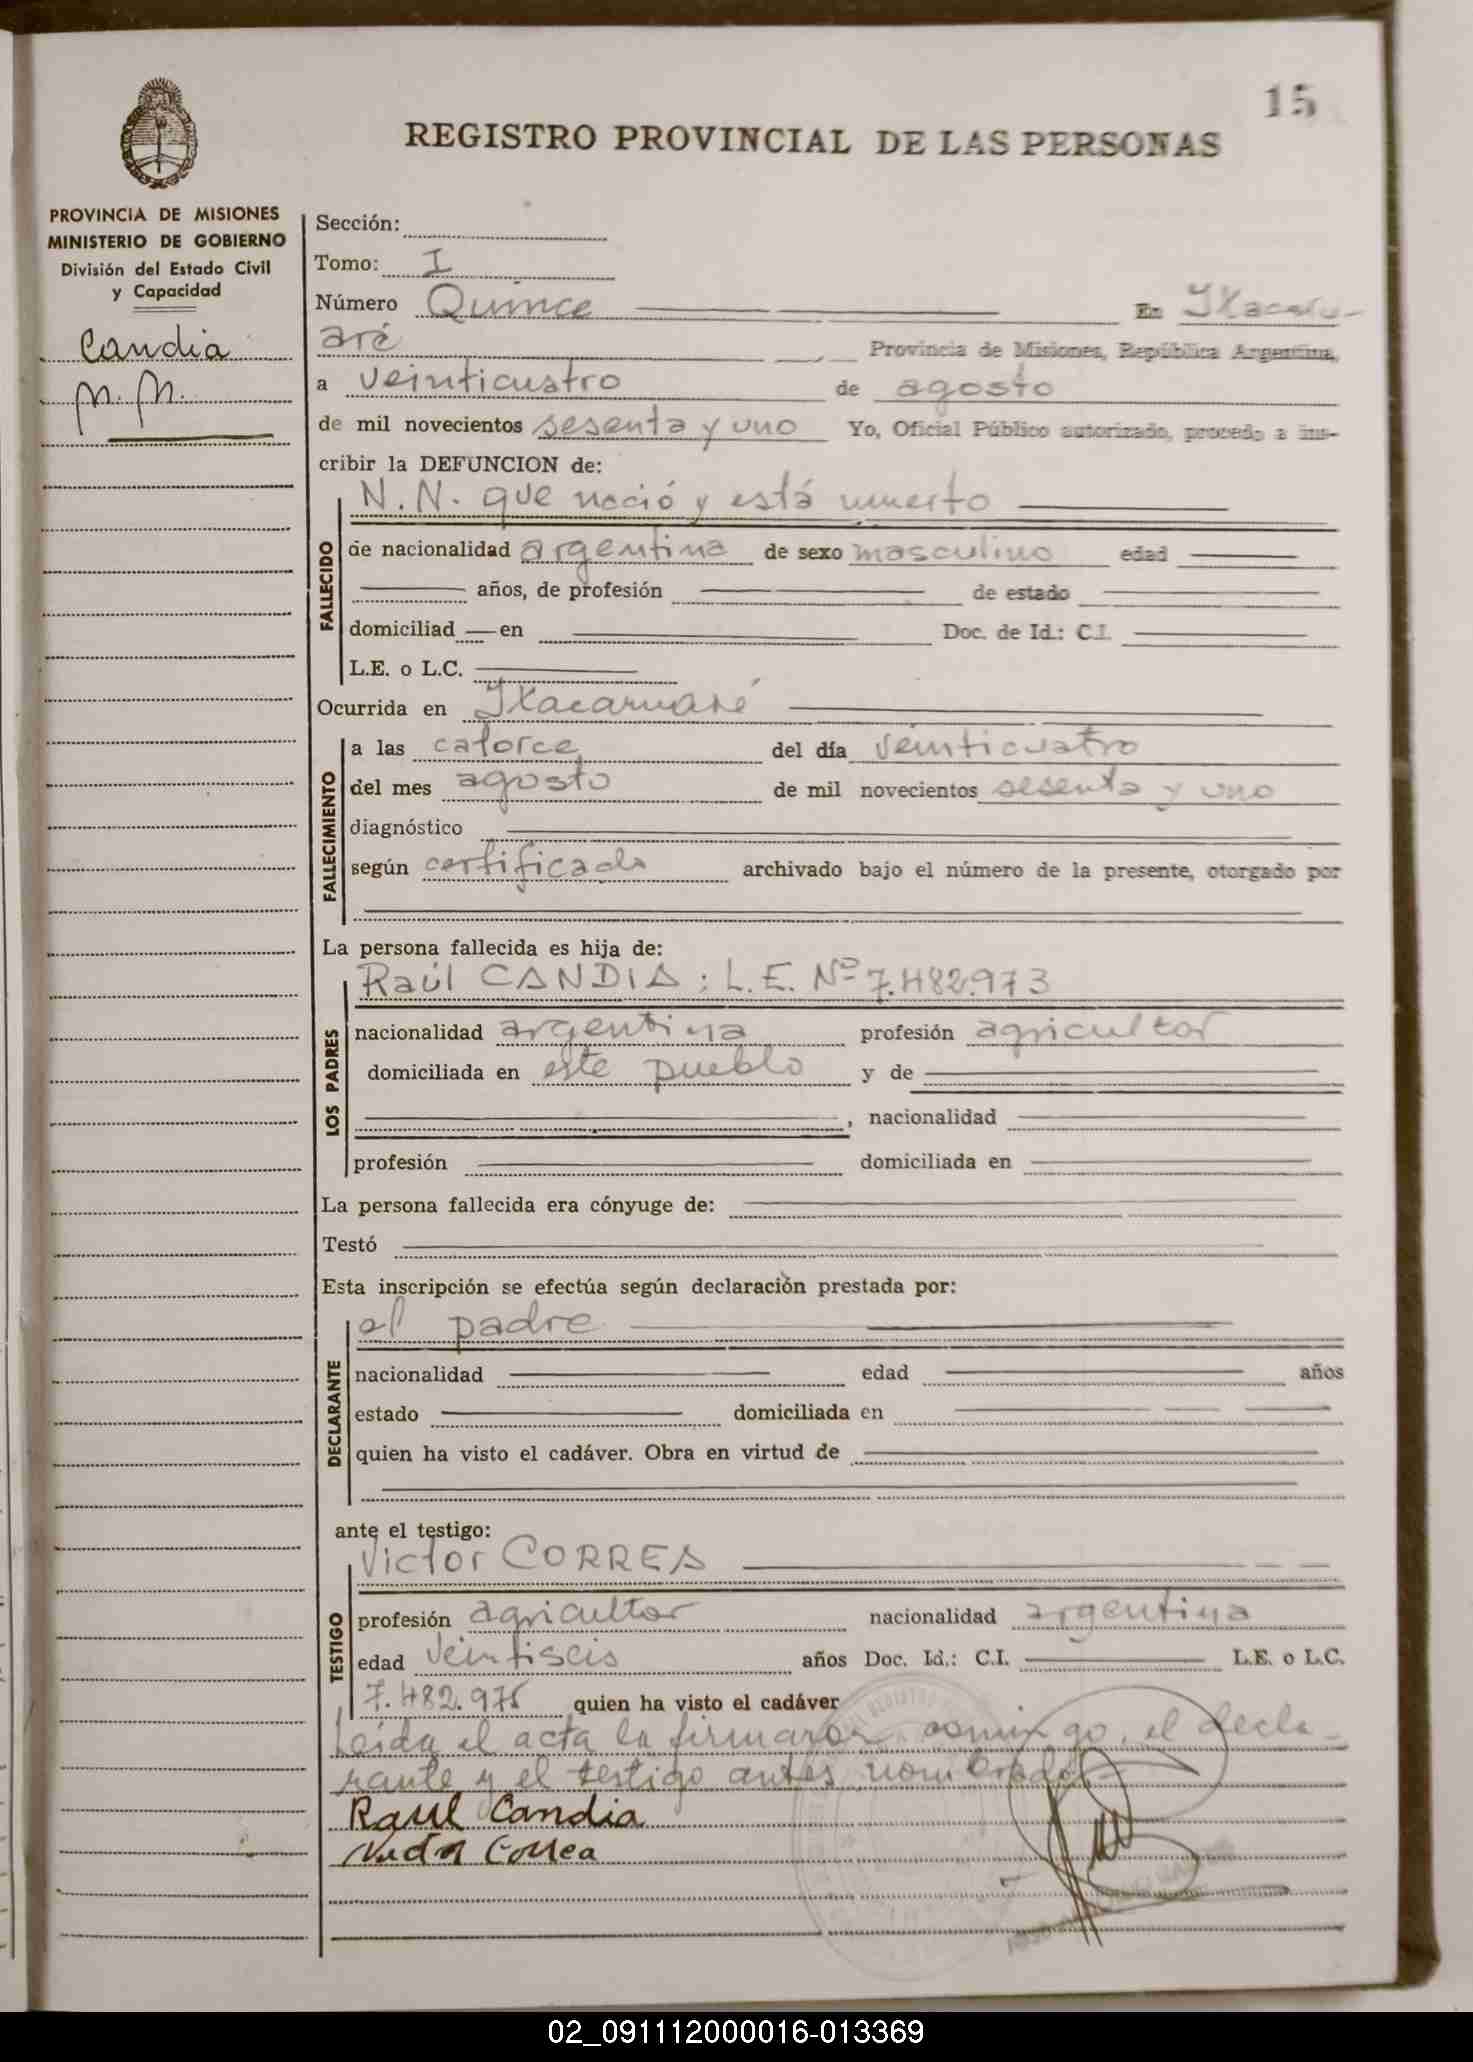 15
REGISTRO PROVINCIAL DE LAS PERSONAS
PROVINCIA DE MISIONES
MINISTERIO DE GOBIERNO
División del Estado Civil
y Capacidad
Candia
N. N.
Sección:
Tomo: I
Número Quince En Itacaru-
aré Provincia de Misiones, República Argentina,
a veinticuatro de agosto
de mil novecientos sesenta y uno Yo, Oficial Público autorizado, procedo a ins-
cribir la DEFUNCION de:
FALLECIDO
N.N. que nació y está muerto
de nacionalidad argentina de sexo masculino edad
años, de profesión de estado
domiciliad en Doc. de Id.: C.I.
L.E. o L.C.
Ocurrida en Itacaruaré
FALLECIMIENTO
a las catorce del día veinticuatro
del mes agosto de mil novecientos sesenta y uno
diagnóstico
según certificado archivado bajo el número de la presente, otorgado por
La persona fallecida es hija de:
LOS PADRES
Raúl CANDIA : L.E. Nº 7.482.973
nacionalidad argentina profesión agricultor
domiciliada en este pueblo y de
, nacionalidad
profesión domiciliada en
La persona fallecida era cónyuge de:
Testó
Esta inscripción se efectúa según declaración prestada por:
DECLARANTE
el padre
nacionalidad edad años
estado domiciliada en
quien ha visto el cadáver. Obra en virtud de
ante el testigo:
TESTIGO
Victor CORREA
profesión agricultor nacionalidad argentina
edad veintiseis años Doc. Id.: C.I. L.E. o L.C.
7.482.975 quien ha visto el cadáver
Leida el acta la firmaron conmigo, el decla-
rante y el testigo antes nombrado
Raul Candia
Victor Correa
02_091112000016-013369